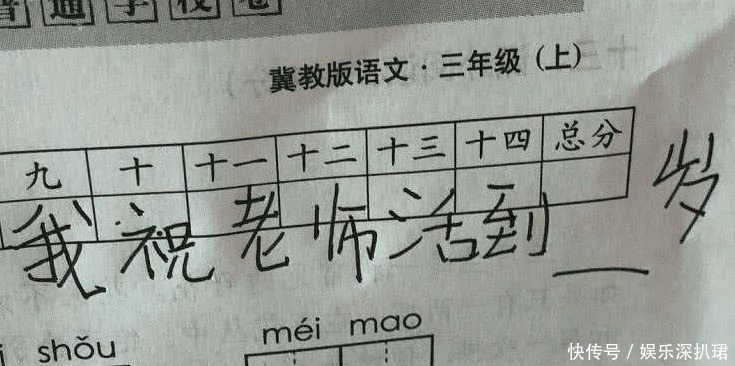 普通学校卷
冀教版语文·三年级（上）
九 十 十一 十二 十三 十四 总分
我祝老师活到＿岁
shǒu méi mao
快传号 / 娱乐深扒珺